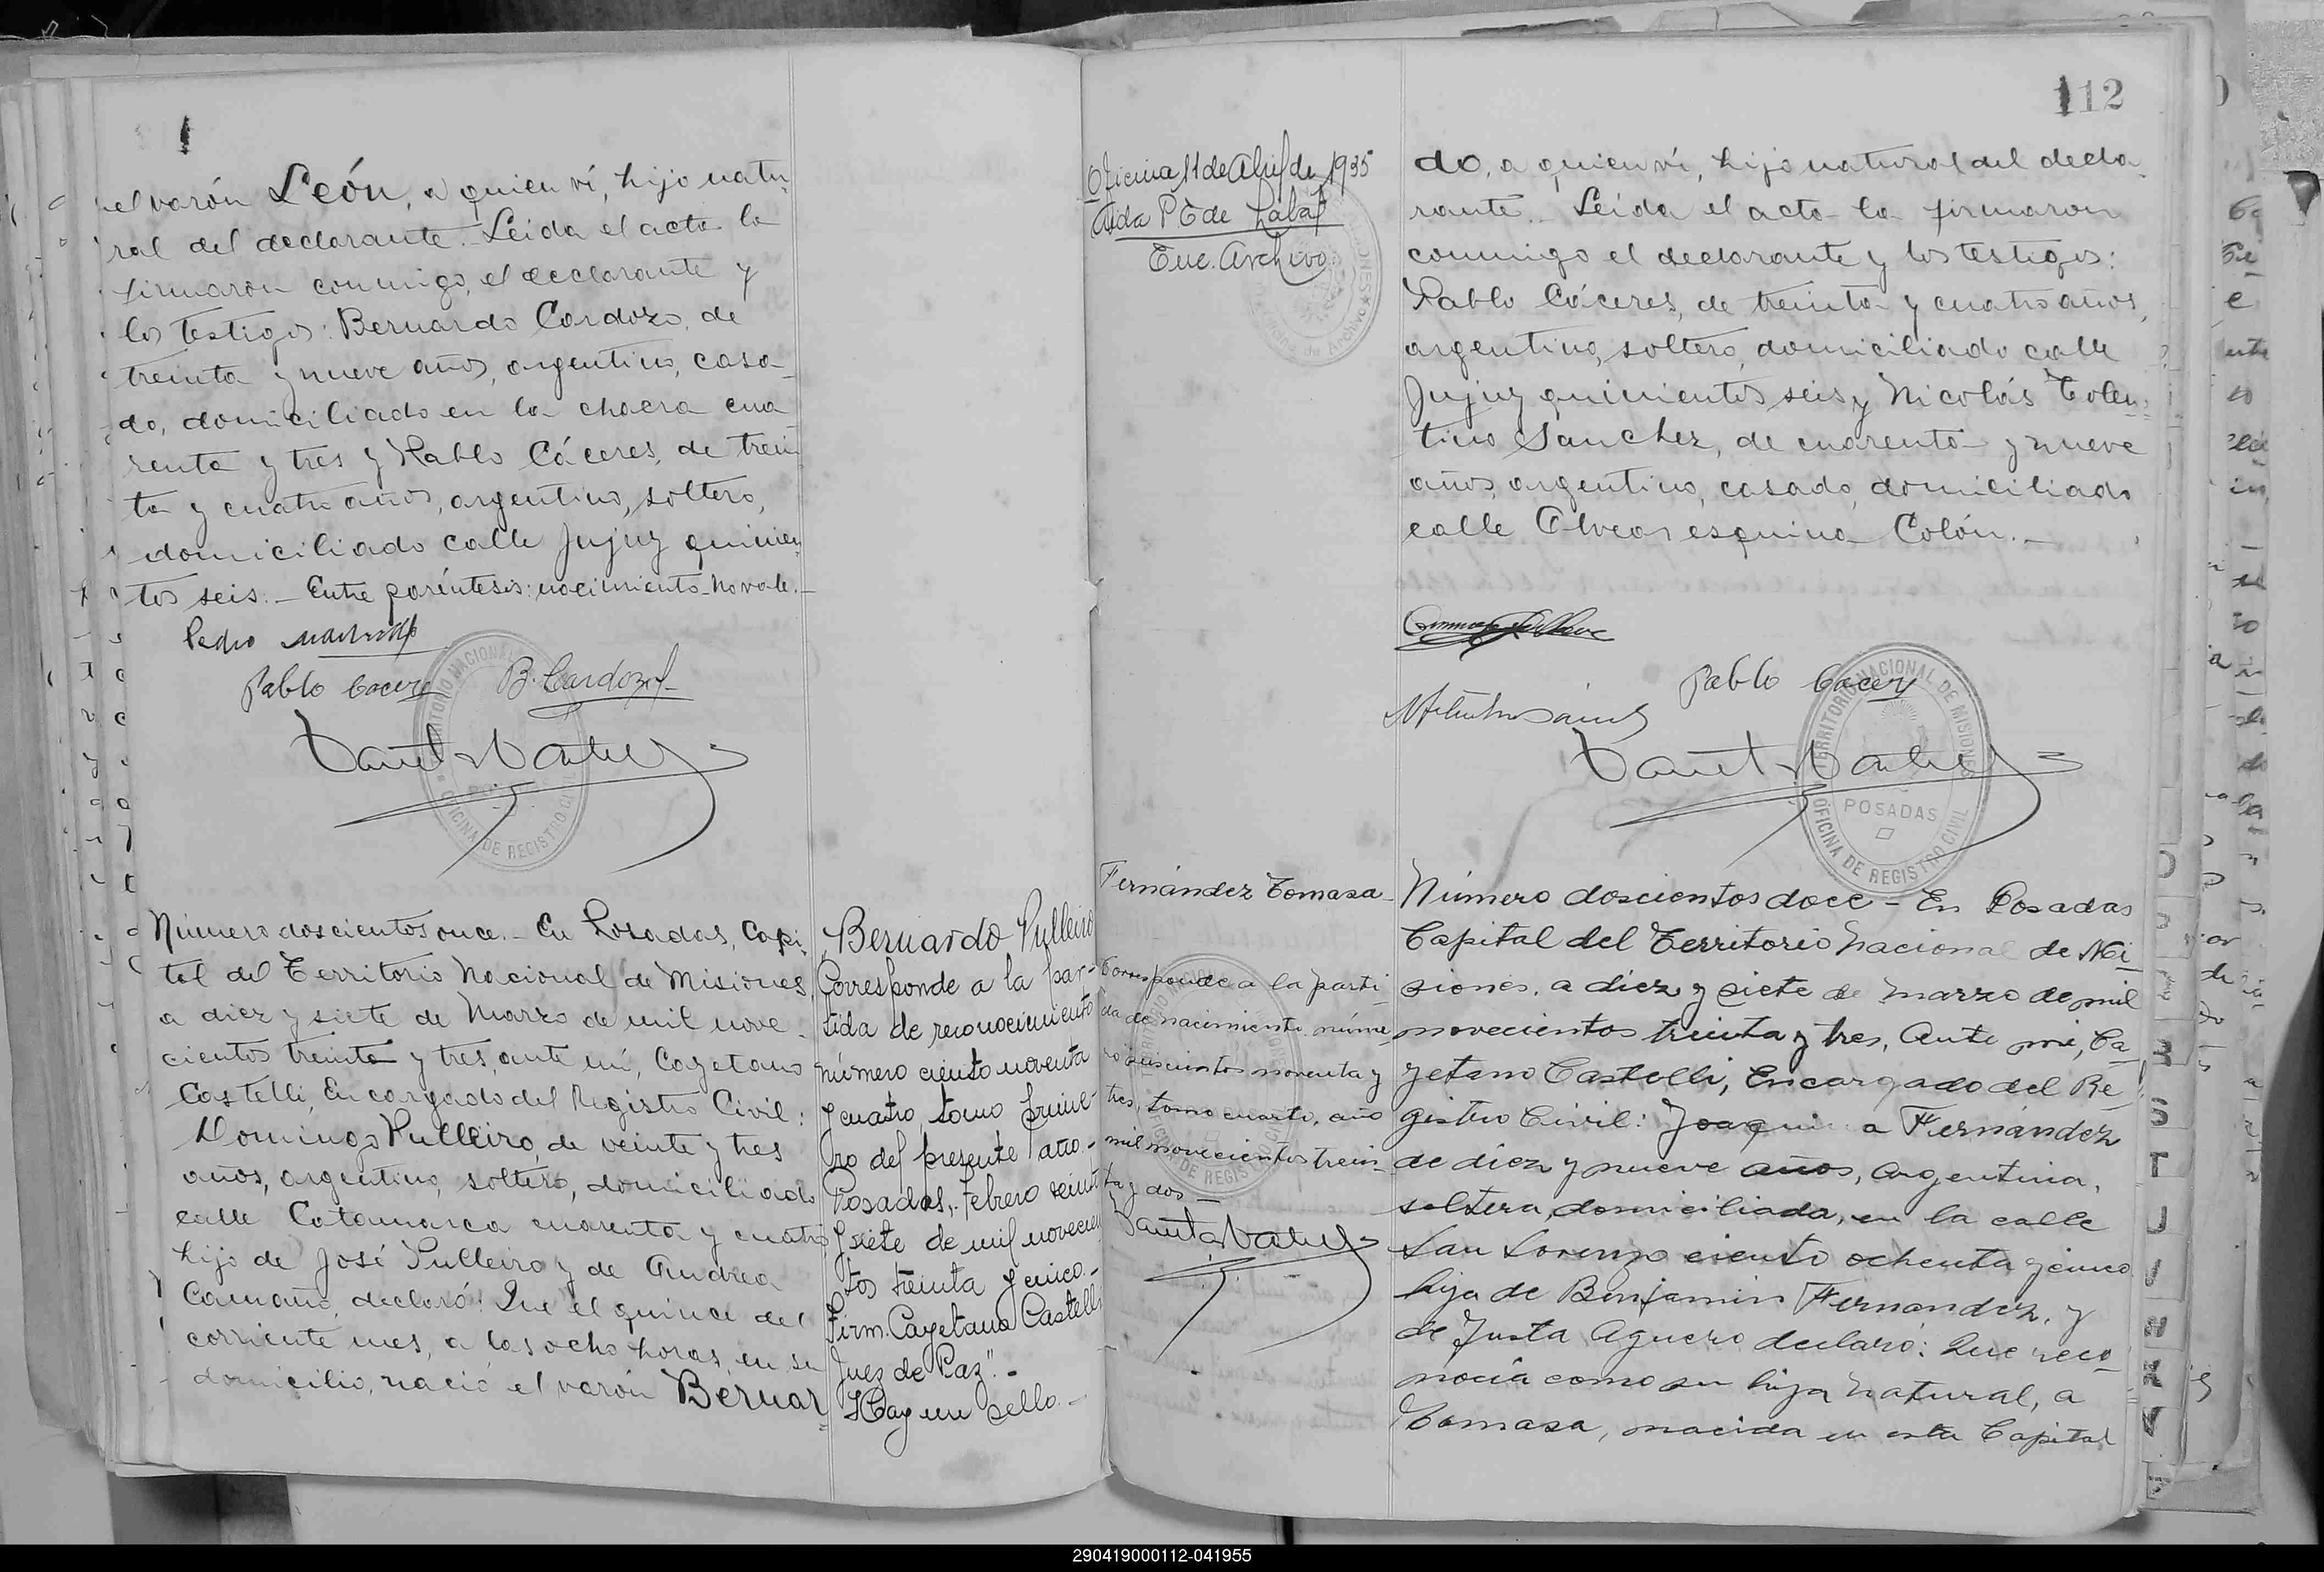 el varón León, a quien ví, hijo natu-
ral del declarante. Leida el acta la
firmaron conmigo, el declarante y
los testigos: Bernardo Cardozo, de
treinta y nueve años, argentino, casa-
do, domiciliado en la chacra cua
renta y tres y Pablo Cáceres, de trein
ta y cuatro años, argentino, soltero,
domiciliado calle Jujuy quinien
tos seis.- Entre paréntesis: nacimiento-no vale.-
Pedro
Pablo Cacere B. Cardozo
TERRITORIO NACIONAL
OFICINA DE REGISTRO CIVIL
Número doscientos once.- En Posadas, Capi-
tal del Territorio Nacional de Misiones,
a diez y siete de Marzo de mil nove-
cientos treinta y tres, ante mí, Cayetano
Castelli, Encargado del Registro Civil:
Domingo Pulleiro, de veinte y tres
años, argentino, soltero, domiciliado
calle Catamarca cuarenta y cuatro
hijo de José Pulleiro y de Andrea
Camaño, declaró: Que el quince del
corriente mes, a las ocho horas, en su
domicilio, nació el varón Bernar
Bernardo Pulleiro
Corresponde a la par-
tida de reconocimiento
número ciento noventa
y cuatro, tomo prime-
ro del presente año.-
Posadas, Febrero veinti
y siete de mil novecien
tos treinta y cinco.-
Firm. Cayetano Castelli
Juez de Paz".-
Hay un sello.-
112
Oficina 11 de Abril de 1935
Aida P. C de
Enc. Archivo
do, a quien ví, hijo natural del decla
rante.- Leída el acta la firmaron
conmigo el declarante y los testigos:
Pablo Cáceres, de treinta y cuatro años,
argentino, soltero, domiciliado calle
Jujuy quinientos seis y Nicolás Tolen-
tino Sanchez, de cuarenta y nueve
años, argentino, casado, domiciliado
calle Alvear esquina Colón.-
Pablo Cacere
TERRITORIO NACIONAL DE MISIONES
POSADAS
OFICINA DE REGISTRO CIVIL
Fernández Tomasa-
Corresponde a la parti-
da de nacimiento núme
ro seiscientos noventa y
tres, tomo cuarto, año
mil novecientos trein-
ta y dos-
Número doscientos doce - En Posadas
Capital del Territorio Nacional de Mi-
siones, a diez y siete de marzo de mil
novecientos treinta y tres, Ante mi, Ca-
yetano Castelli, Encargado del Re-
gistro Civil: Joaquina Fernández
de diez y nueve años, Argentina,
soltera, domiciliada, en la calle
San Lorenzo ciento ochenta y cinco
hija de Benjamin Fernandez, y
de Justa Aguero declaró: Que reco-
nocía como su hija natural, a
Tomasa, nacida en esta Capital
290419000112-041955